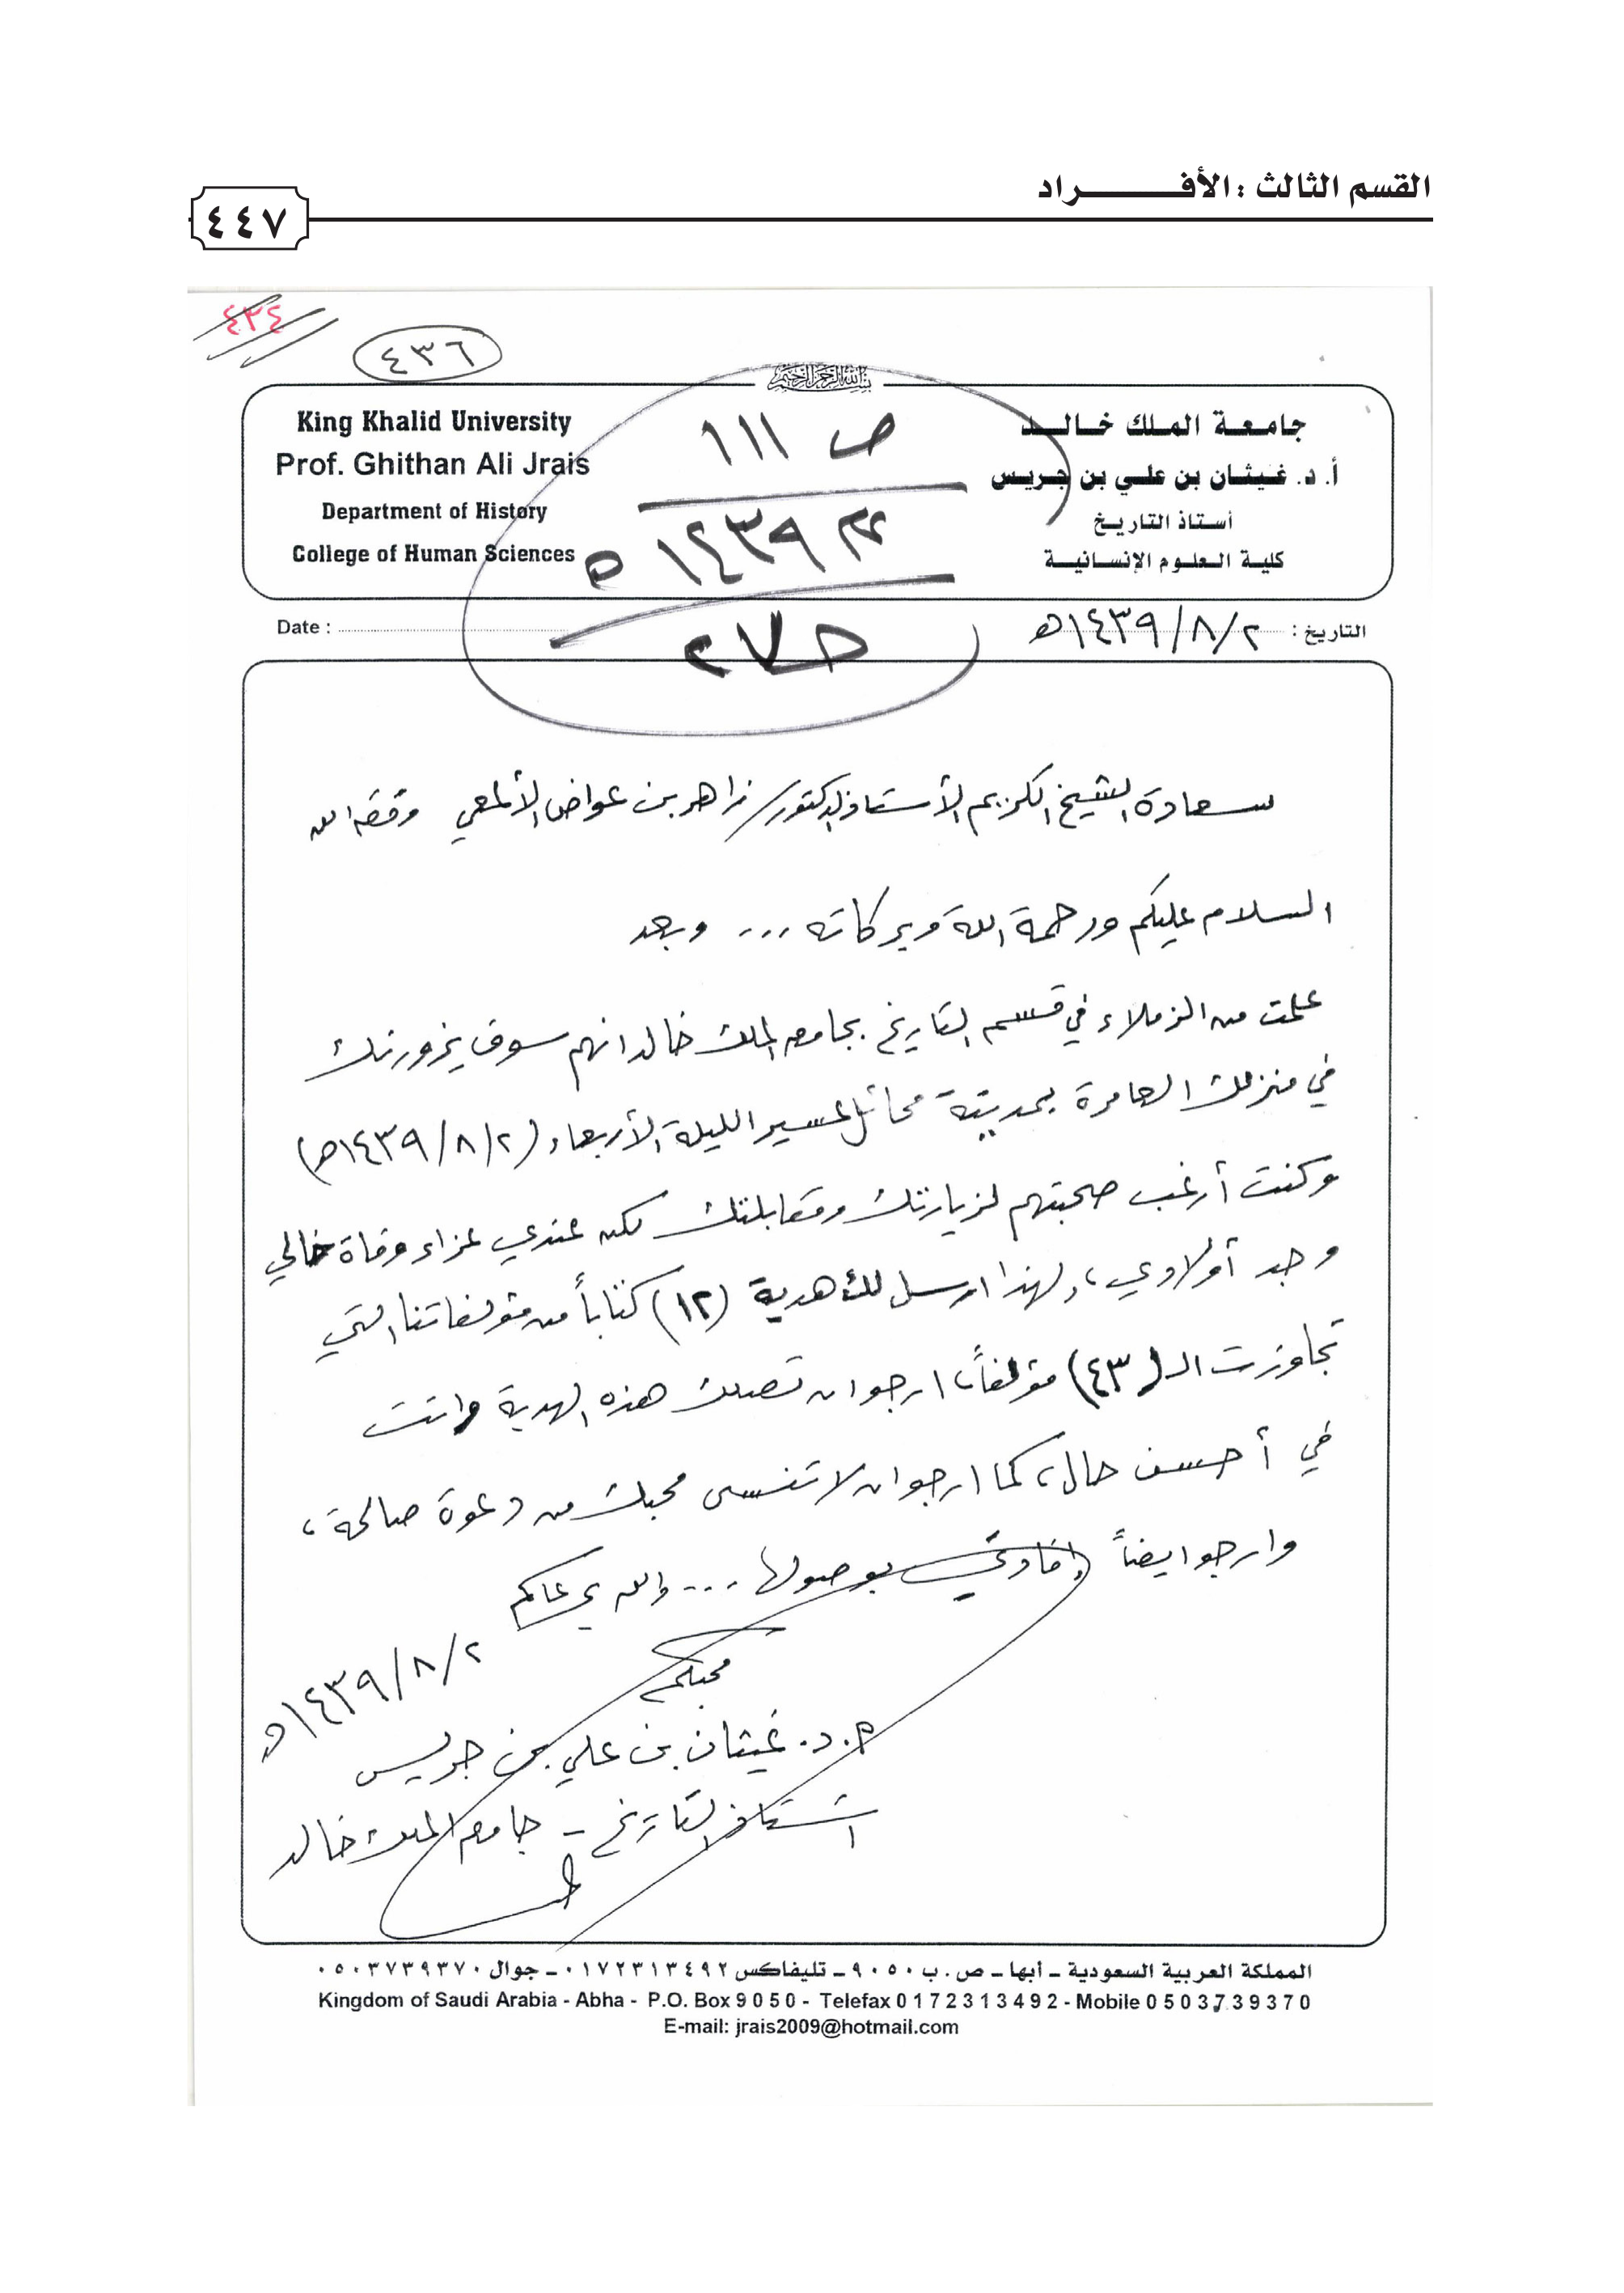 القسم الثالث : الأفـــــراد
٤٤٧
٤٣٤
٤٣٦
بسم الله الرحمن الرحيم
King Khalid University
Prof. Ghithan Ali Jrais
Department of History
College of Human Sciences
جامعة الملك خالد
أ. د. غيثان بن علي بن جريس
أستاذ التاريخ
كلية العلوم الإنسانية
ص ١١١
١٤٣٩ هـ
Date :
التاريخ : ٢/٨/١٤٣٩هـ
سعادة الشيخ الكريم الأستاذ الدكتور/ زاهر بن عواض الألمعي وفقه الله
السلام عليكم ورحمة الله وبركاته ... وبعد
علمت من الزملاء في قسم التاريخ بجامعة الملك خالد انهم سوف يزورنك
في منزلك العامرة بمدينة محائل عسير الليلة الأربعاء (٢/٨/١٤٣٩هـ)
وكنت أرغب صحبتهم لزيارتك ومقابلتك لكن عندي عزاء وفاة خالي
وجد أولادي، ولهذا ارسل لك هدية (١٢) كتاباً من مؤلفاتنا التي
تجاوزت الـ (٤٣) مؤلفاً، ارجو ان تصلك هذه الهدية وانت
في أحسن حال، كما ارجو ان لا تنسى محبك من دعوة صالحة،
وارجو ايضاً إفادتي بوصولها ... والله يرعاكم
محبكم
٢/٨/١٤٣٩هـ
أ. د. غيثان بن علي بن جريس
استاذ التاريخ - جامعة الملك خالد
المملكة العربية السعودية - أبها - ص. ب ٩٠٥٠ - تليفاكس ٠١٧٢٣١٣٤٩٢ - جوال ٠٥٠٣٧٣٩٣٧٠
Kingdom of Saudi Arabia - Abha - P.O. Box 9 0 5 0 - Telefax 0 1 7 2 3 1 3 4 9 2 - Mobile 0 5 0 3 7 3 9 3 7 0
E-mail: jrais2009@hotmail.com